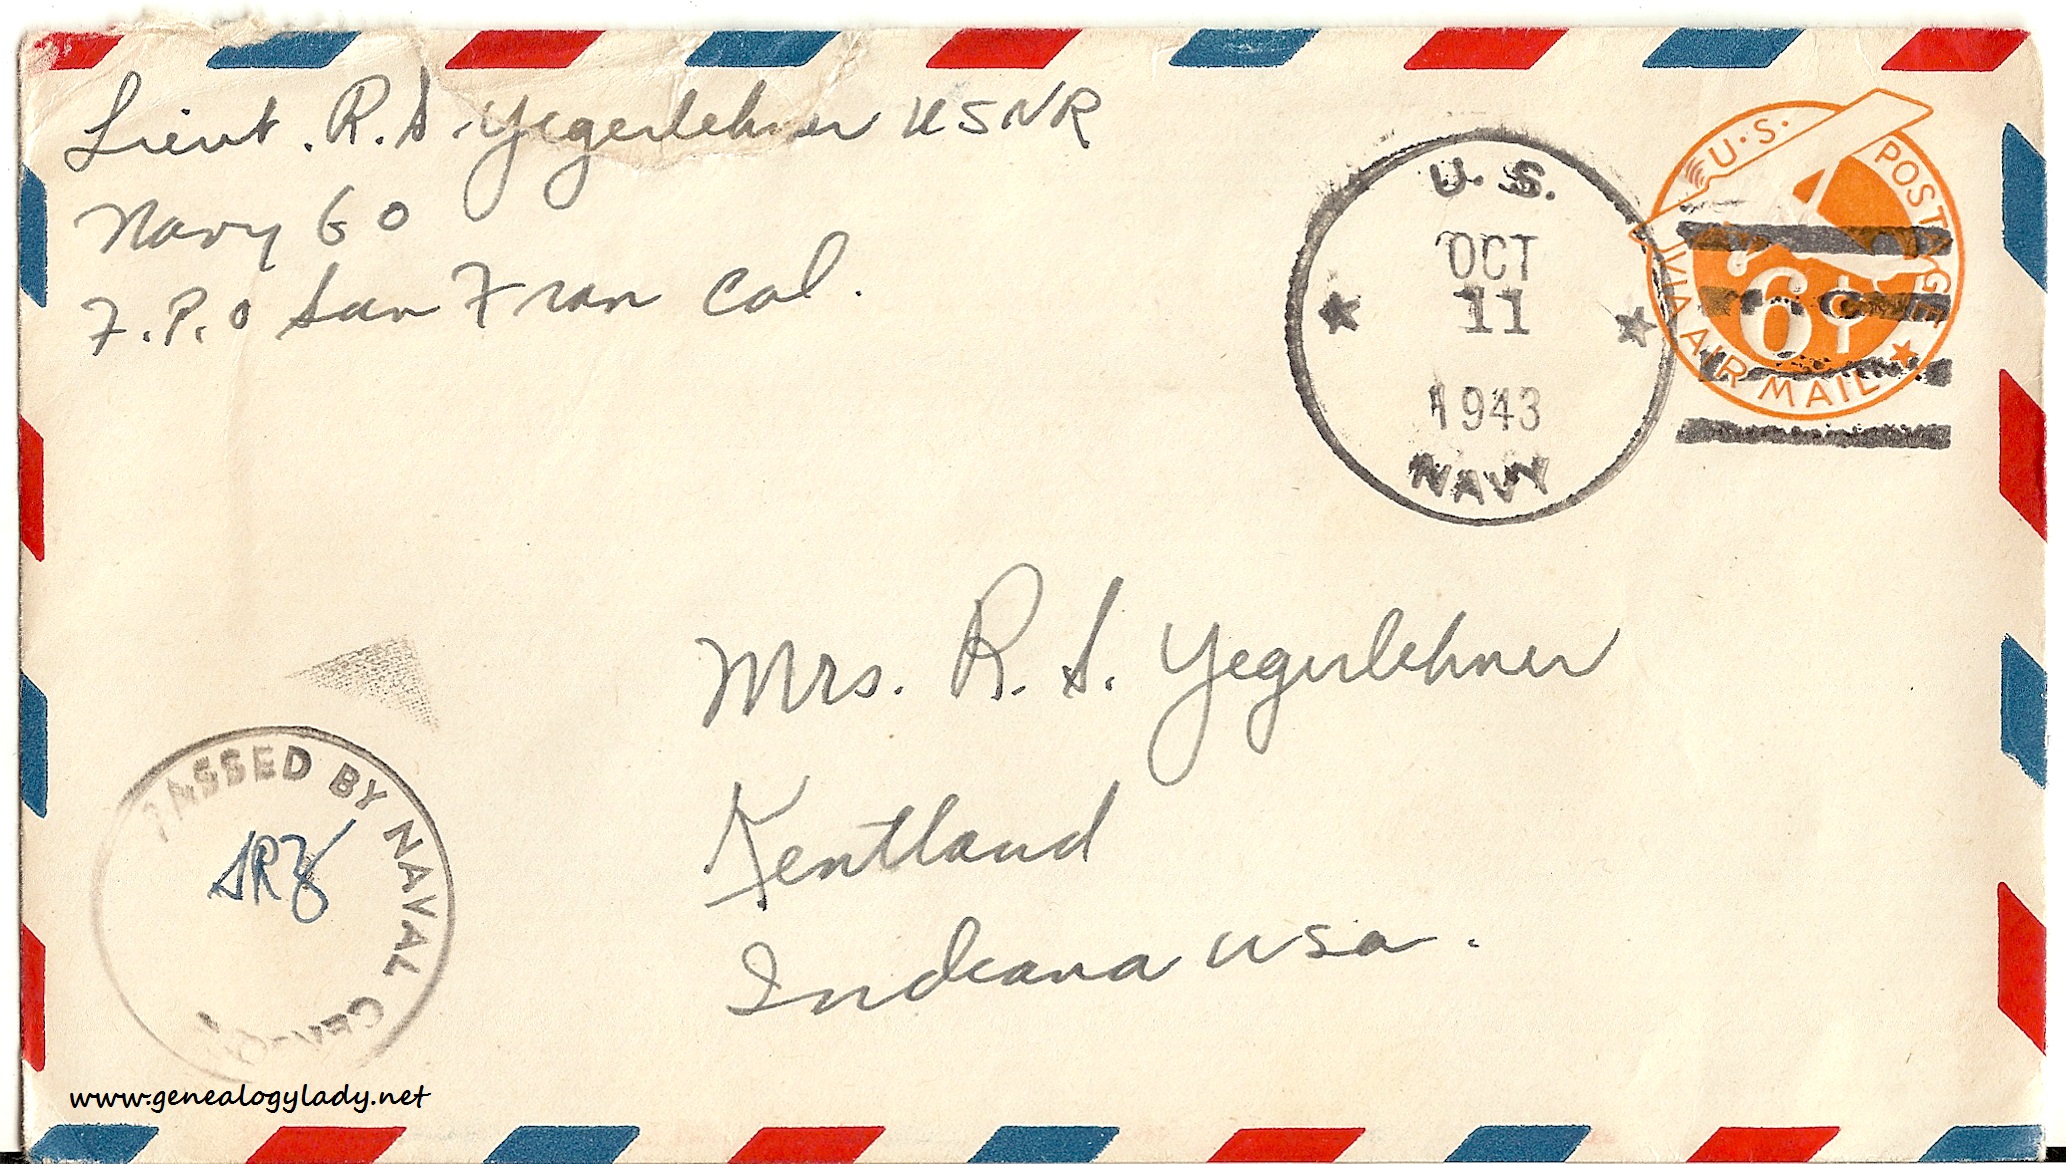 Lieut. R. S. Yegerlehner USNR
Navy 60
F.P.O San Fran Cal.
U. S.
OCT
11
1943
NAVY
U.S. POSTAGE
VIA AIR MAIL
6¢
Mrs. R. S. Yegerlehner
Kentland
Indiana USA.
PASSED BY NAVAL CENSOR
www.genealogylady.net